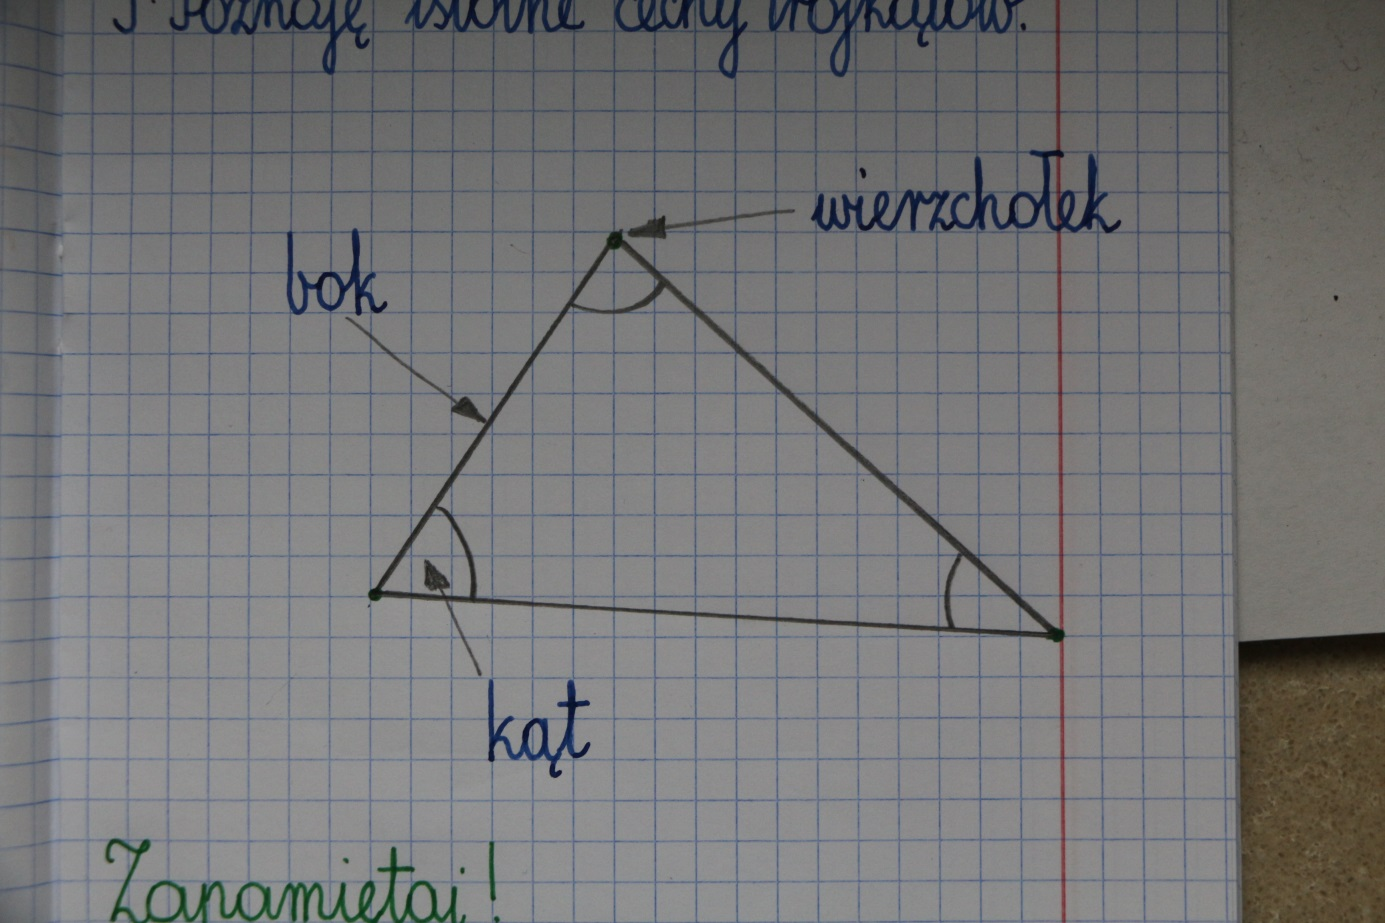 Poznaję istotne cechy trójkątów.
wierzchołek
bok
kąt
Zapamiętaj!